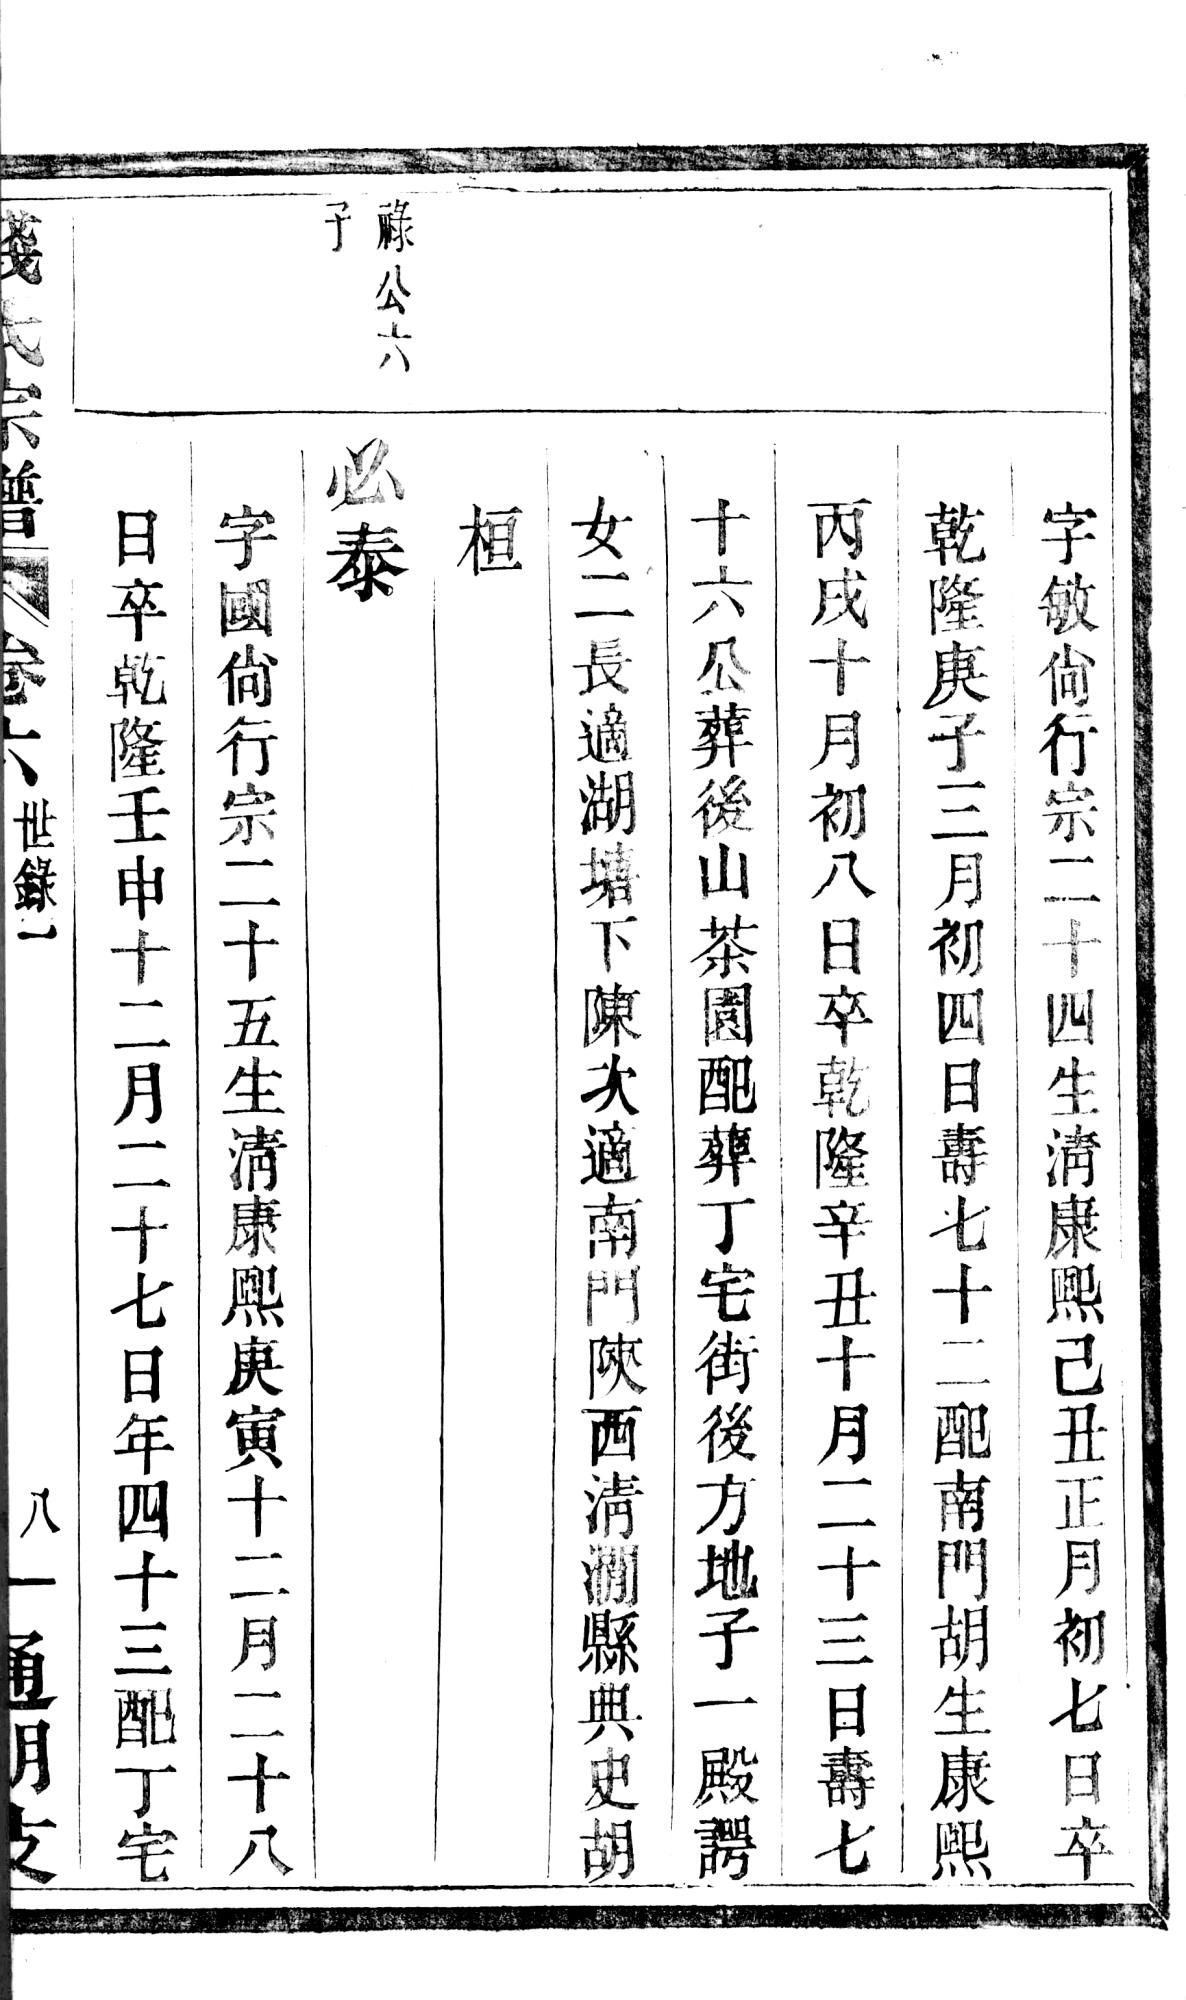 字敏尙行宗二十四生淸康熙己丑正月初七日卒
乾隆庚子三月初四日壽七十二配南門胡生康熙
丙戌十月初八日卒乾隆辛丑十月二十三日壽七
十六公葬後山茶園配葬丁宅街後方地子一殿諤
女二長適湖塘下陳次適南門陝西淸澗縣典史胡
桓
祿公六
子
必泰
字國尙行宗二十五生淸康熙庚寅十二月二十八
日卒乾隆壬申十二月二十七日年四十三配丁宅
氏宗譜 卷六 世錄一 八 通明支